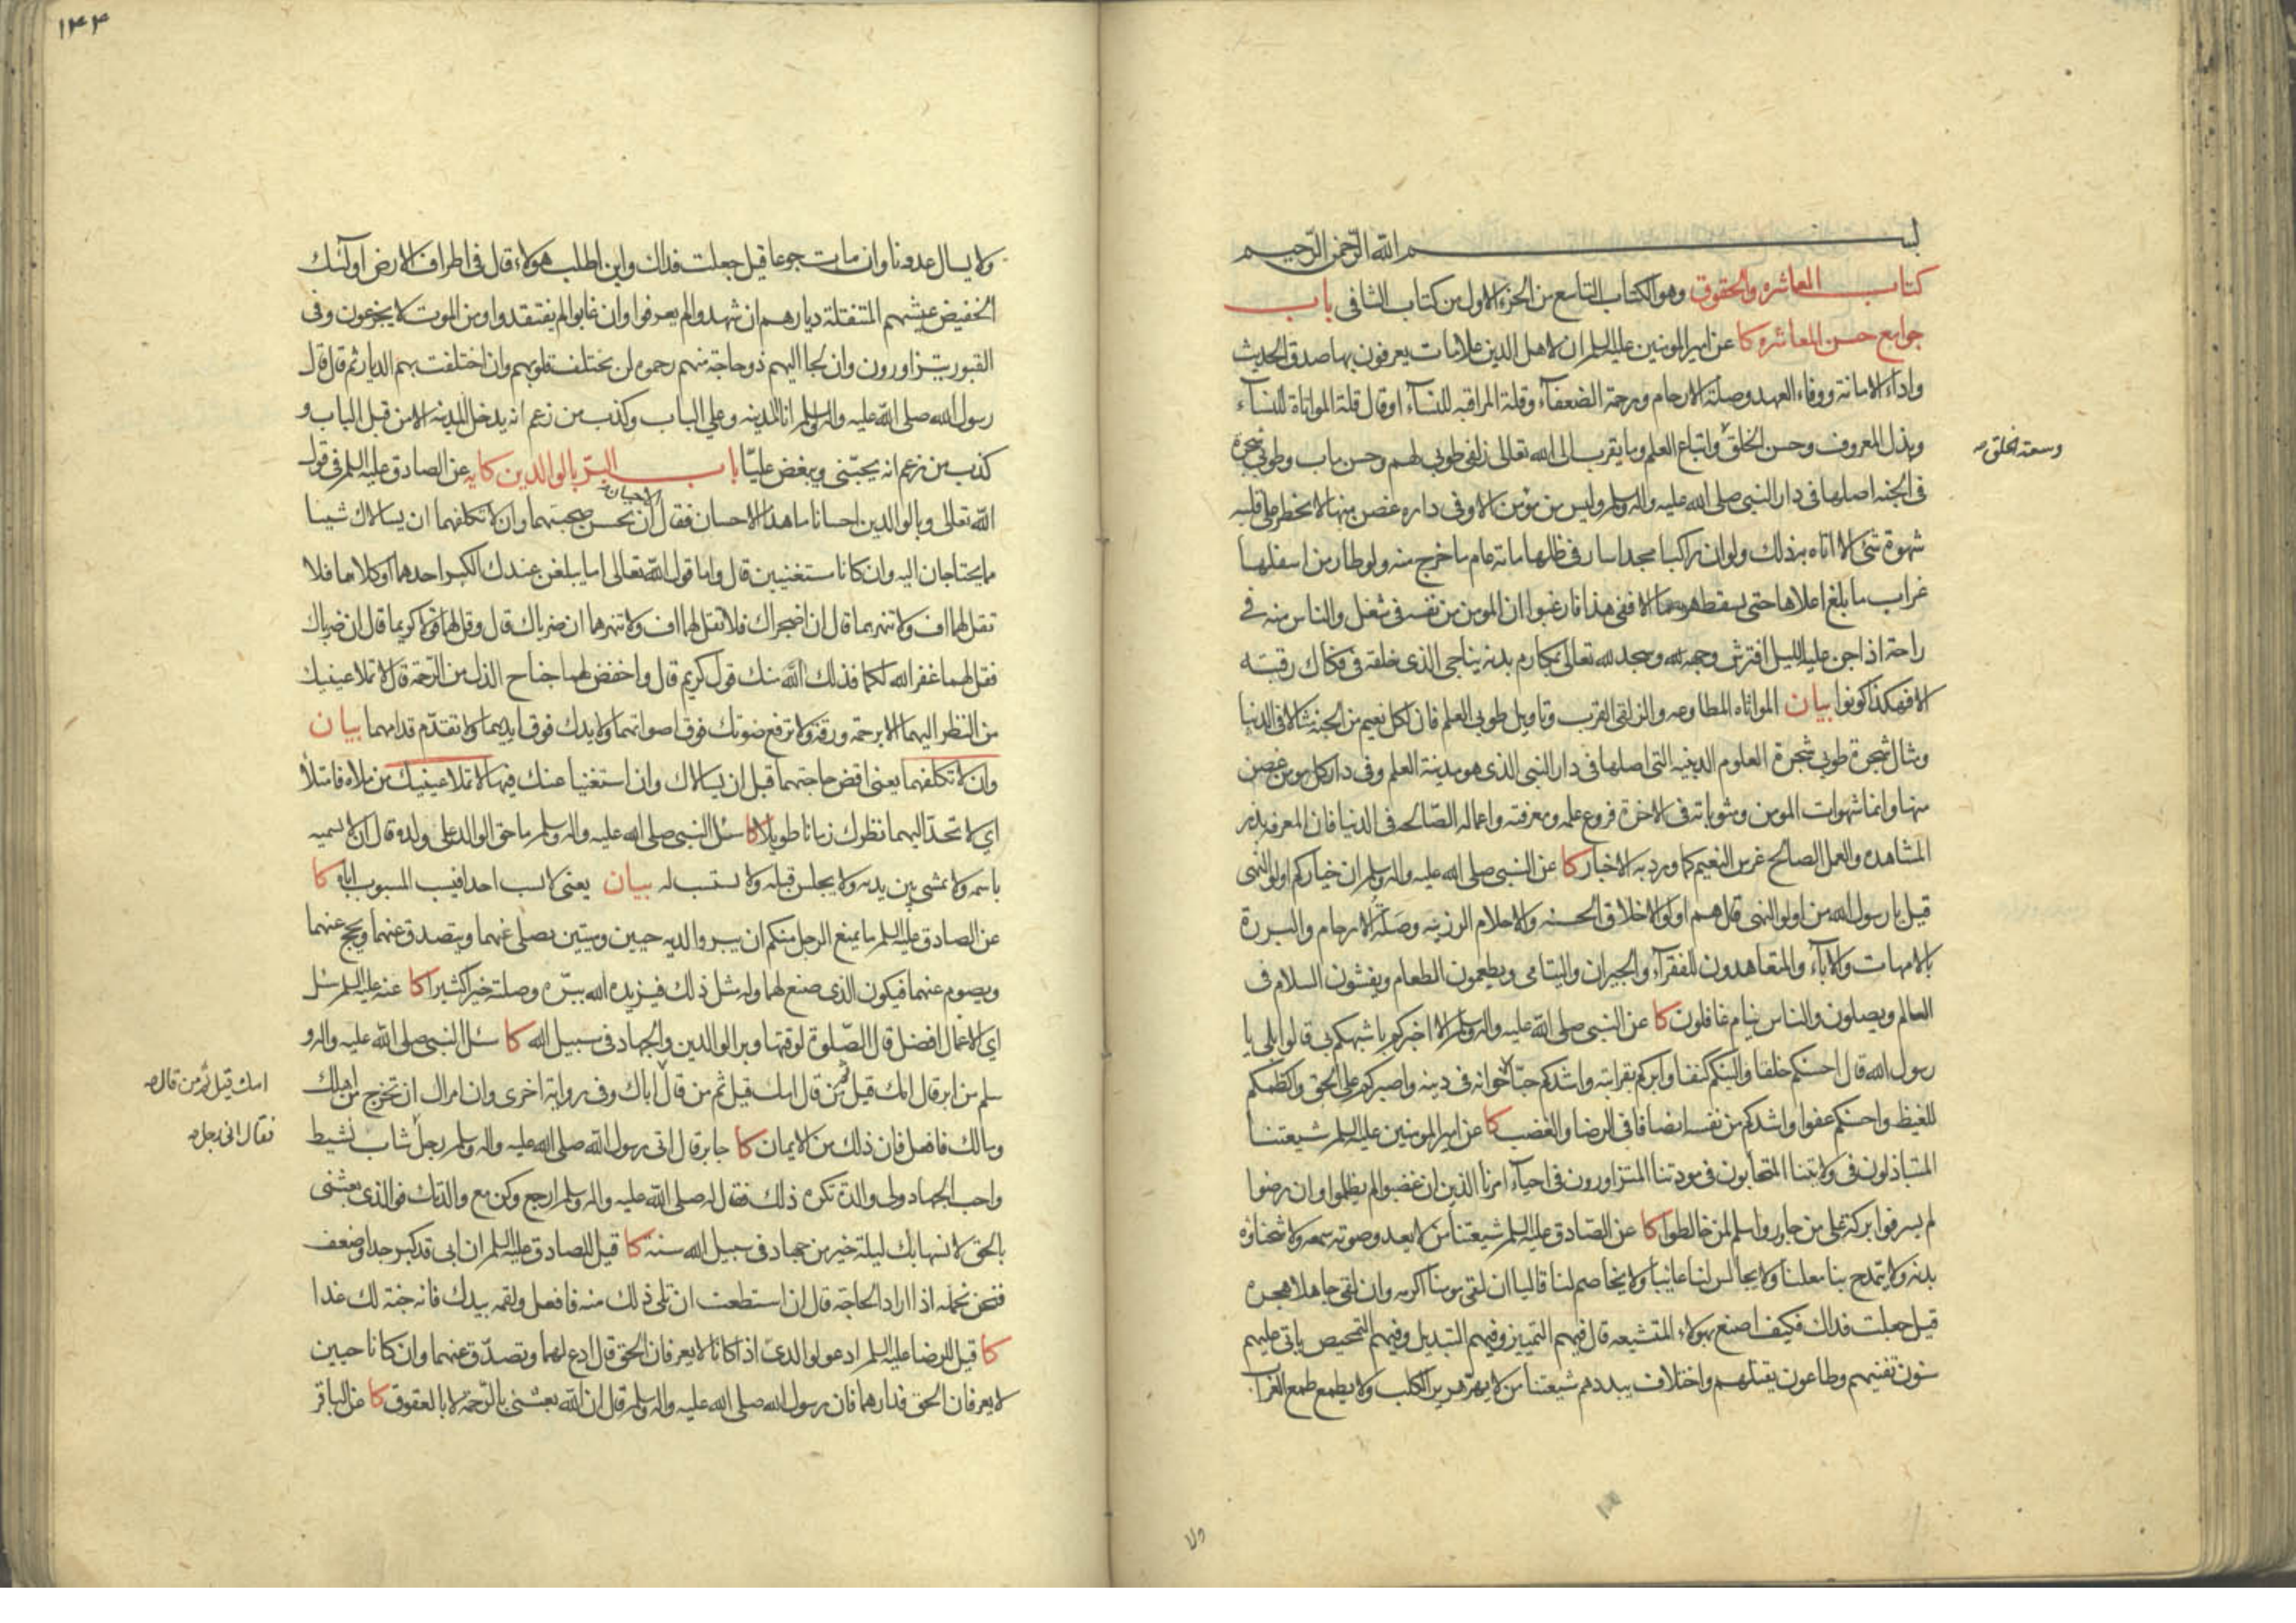 بسم الله الرحمن الرحيم
كتاب المعاشره والحقوق وهو الكتاب التاسع من الجزء الاول من كتاب الشافى باب
جوامع حسن المعاشره كا عن امير المومنين عليه السلم ان لاهل الدين علامات يعرفون بها صدق الحديث
واداء الامانة ووفاء العهد وصلة الارحام ورحمة الضعفآء وقلة المراقبه للنسآء او قال قلة المواتاة للنسآء
وبذل المعروف وحسن الخلق واتباع العلم وما يقرب الى الله تعالى زلفى طوبى لهم وحسن ماب وطوبى شجرة
وسعة الخلق صح
فى الجنه اصلها فى دار النبى صلى الله عليه واله وسلم وليس من مؤمن الا وفى داره غصن منها لا يخطر على قلبه
شهوة شئ الا اتاه بذلك ولو ان راكبا مجدا سار فى ظلها مائة عام ما خرج منه ولو طار من اسفلها
غراب ما بلغ اعلاها حتى يسقط هرما الا ففى هذا فارغبوا ان المومن من نفسه فى شغل والناس منه فى
راحة اذا جن عليه الليل افترش وجهه وسجد لله تعالى بمكارم بدنه يناجى الذى خلقه فى فكاك رقبته
الا فهكذا كونوا بيان المواتاه المطاوعه والزلفى القرب وتاويل طوبى العلم فان لكل نعيم من الجنه مثالا فى الدنيا
ومثال شجرة طوبى شجرة العلوم الدينيه التى اصلها فى دار النبى الذى هو مدينة العلم وفى دار كل مومن غصن
منها وانما شهوات المومن ومثوباته فى الاخرة فروع علمه ومعرفته واعماله الصالحه فى الدنيا فان المعرفه بذر
المشاهده والعمل الصالح غرس النعيم كما ورد به الاخبار كا عن النبى صلى الله عليه واله وسلم ان خياركم اولو النهى
قيل يا رسول الله من اولو النهى قال هم اولو الاخلاق الحسنه والاحلام الرزينه وصلة الارحام والبررة
بالامهات والابآء والمتعاهدون للفقرآء والجيران واليتامى ويطعمون الطعام ويفشون السلام فى
العالم ويصلون والناس نيام غافلون كا عن النبى صلى الله عليه واله وسلم الا اخبركم باشبهكم بى قالوا بلى يا
رسول الله قال احسنكم خلقا والينكم كنفا وابركم بقرابته واشدكم حبا لاخوانه فى دينه واصبركم على الحق واكظمكم
للغيظ واحسنكم عفوا واشدكم من نفسه انصافا فى الرضا والغضب كا عن امير المومنين عليه السلم شيعتنا
المتباذلون فى ولايتنا المتحابون فى مودتنا المتزاورون فى احيآء امرنا الذين ان غضبوا لم يظلموا وان رضوا
لم يسرفوا بركة على من جاوروا سلم لمن خالطوا كا عن الصادق عليه السلم شيعتنا من لا يعدو صوته سمعه ولا شحناؤه
بدنه ولا يمتدح بنا معلنا ولا يجالس لنا عائبا ولا يخاصم لنا قاليا ان لقى مومنا اكرمه وان لقى جاهلا هجره
قيل جعلت فداك فكيف اصنع بهولاء المتشيعه قال فيهم التمييز وفيهم التبديل وفيهم التمحيص ياتى عليهم
سنون تفنيهم وطاعون يقتلهم واختلاف يبددهم شيعتنا من لا يهر هرير الكلب ولا يطمع طمع الغراب
ولا
١٤٤
ولا يسال عدونا وان مات جوعا قيل جعلت فداك واين اطلب هولاء قال فى اطراف الارض اولئك
الخفيض عيشهم المتنقلة ديارهم ان شهدوا لم يعرفوا وان غابوا لم يفتقدوا ومن الموت لا يجزعون وفى
القبور يتزاورون وان لجا اليهم ذو حاجة منهم رحموه لن يختلف قلوبهم وان اختلفت بهم الديار ثم قال قال
رسول الله صلى الله عليه واله وسلم انا المدينه وعلى الباب وكذب من زعم انه يدخل المدينه الا من قبل الباب و
كذب من زعم انه يحبنى ويبغض عليا باب البر بالوالدين كا يه عن الصادق عليه السلم فى قول
الله تعالى وبالوالدين احسانا ما هذا الاحسان فقال الاحسان ان تحسن صحبتهما وان لا تكلفهما ان يسالاك شيئا
مما يحتاجان اليه وان كانا مستغنيين قال واما قول الله تعالى اما يبلغن عندك الكبر احدهما او كلاهما فلا
تقل لهما اف ولا تنهرهما قال ان اضجراك فلا تقل لهما اف ولا تنهرهما ان ضرباك قال وقل لهما قولا كريما قال ان ضرباك
فقل لهما غفر الله لكما فذلك منك قول كريم قال واخفض لهما جناح الذل من الرحمة قال لا تملا عينيك
من النظر اليهما الا برحمة ورقة ولا ترفع صوتك فوق اصواتهما ولا يدك فوق ايديهما ولا تقدم قدامهما بيان
وان لا تكلفهما يعنى اقض حاجتهما قبل ان يسالاك وان استغنيا عنك فيها لا تملا عينيك من ملاه فامتلا
اى لا تحد اليهما نظرك زمانا طويلا كا سئل النبى صلى الله عليه واله وسلم ما حق الوالد على ولده قال ان لا يسميه
باسمه ولا يمشى بين يديه ولا يجلس قبله ولا يستسب له بيان يعنى لا يسب احدا فيسب المسبوب اباه كا
عن الصادق عليه السلم ما يمنع الرجل منكم ان يبر والديه حيين وميتين يصلى عنهما ويتصدق عنهما ويحج عنهما
ويصوم عنهما فيكون الذى صنع لهما وله مثل ذلك فيزيده الله ببره وصلته خيرا كثيرا كا عنه عليه السلم سئل
اى الاعمال افضل قال الصلوة لوقتها وبر الوالدين والجهاد فى سبيل الله كا سئل النبى صلى الله عليه واله و
سلم من ابر قال امك قيل ثم من قال امك قيل ثم من قال اباك وفى رواية اخرى وان امراك ان تخرج من اهلك
امك قيل ثم من قال صح
ومالك فافعل فان ذلك من الايمان كا جابر قال اتى رسول الله صلى الله عليه واله وسلم رجل شاب نشيط
فقال انى رجل صح
واحب الجهاد ولى والدة تكره ذلك فقال له صلى الله عليه واله وسلم ارجع وكن مع والدتك فو الذى بعثنى
بالحق لانسها بك ليلة خير من جهاد فى سبيل الله سنة كا قيل للصادق عليه السلم ان ابى قد كبر جدا وضعف
فنحن نحمله اذا اراد الحاجة قال ان استطعت ان تلى ذلك منه فافعل ولقمه بيدك فانه جنة لك غدا
كا قيل للرضا عليه السلم ادعو لوالدى اذا كانا لا يعرفان الحق قال ادع لهما وتصدق عنهما وان كانا حيين
لا يعرفان الحق فدارهما فان رسول الله صلى الله عليه واله وسلم قال ان الله بعثنى بالرحمة لا بالعقوق كا عن الباقر